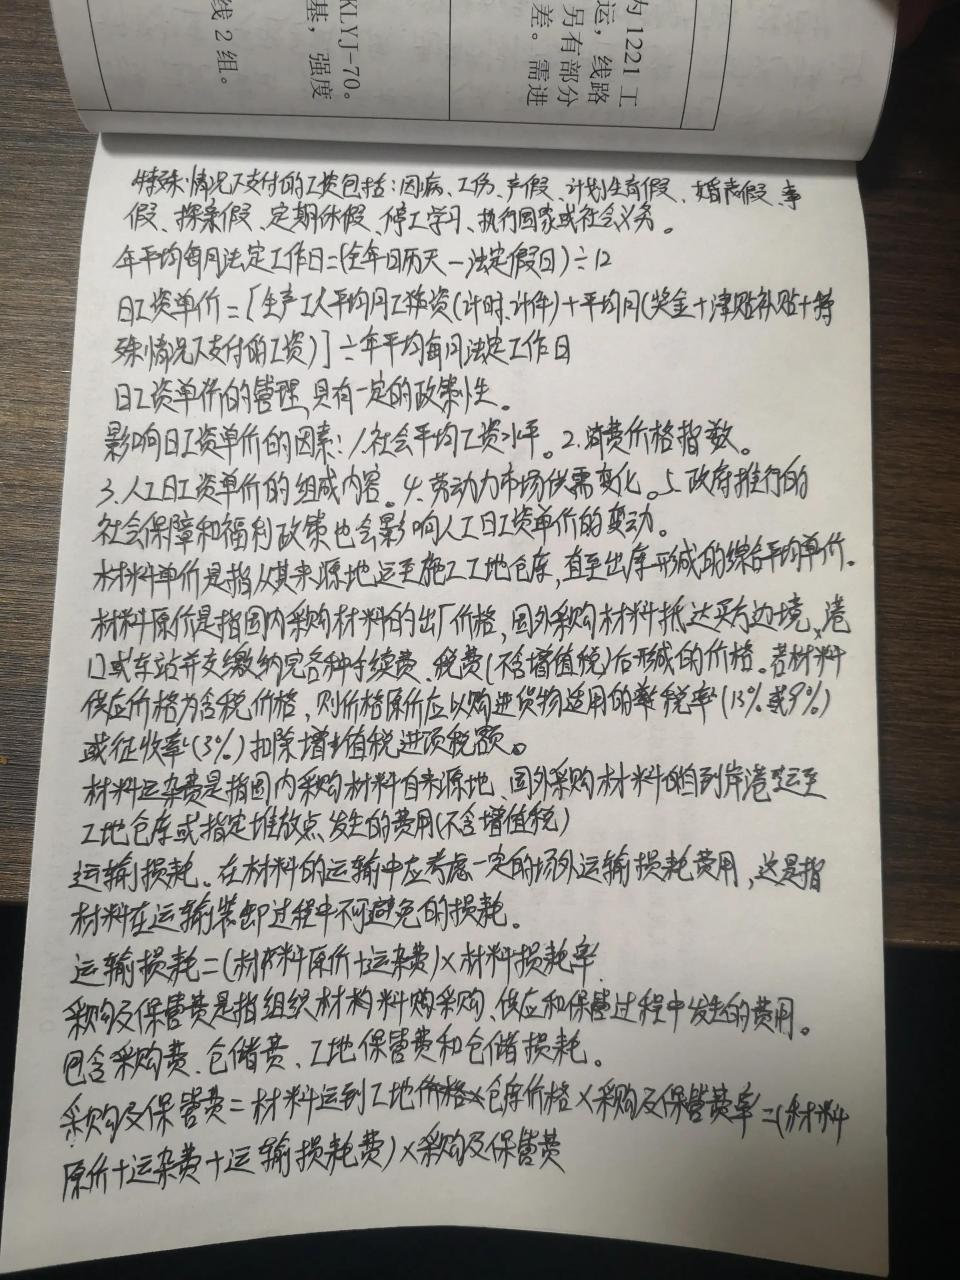 为1221工
运，线路
另有部分
差。需进
KLYJ-70。
基，强度
线2组。
特殊情况下支付的工资包括：因病、工伤、产假、计划生育假、婚丧假、事
假、探亲假、定期休假、停工学习、执行国家或社会义务。
年平均每月法定工作日=(全年日历天－法定假日)÷12
日工资单价=[生产工人平均月工资(计时、计件)+平均月(奖金+津贴补贴+特
殊情况下支付的工资)]÷年平均每月法定工作日
日工资单价的管理具有一定的政策性。
影响日工资单价的因素：1.社会平均工资水平。2.消费价格指数。
3.人工日工资单价的组成内容。4.劳动力市场供需变化。5.政府推行的
社会保障和福利政策也会影响人工日工资单价的变动。
材料单价是指从其来源地运至施工工地仓库，直至出库形成的综合平均单价.
材料原价是指国内采购材料的出厂价格，国外采购材料抵达买方边境、港
口或车站并交缴纳完各种手续费、税费(不含增值税)后形成的价格。若材料
供应价格为含税价格，则价格原价应以购进货物适用的税率(13%或9%)
或征收率(3%)扣除增值税进项税额。
材料运杂费是指国内采购材料自来源地、国外采购材料自到岸港运至
工地仓库或指定堆放点发生的费用(不含增值税)
运输损耗。在材料的运输中应考虑一定的场外运输损耗费用，这是指
材料在运输装卸过程中不可避免的损耗。
运输损耗=(材料原价+运杂费)×材料损耗率
采购及保管费是指组织材料采购、供应和保管过程中发生的费用。
包含采购费、仓储费、工地保管费和仓储损耗。
采购及保管费=材料运到工地仓库价格×采购及保管费率=(材料
原价+运杂费+运输损耗费)×采购及保管费